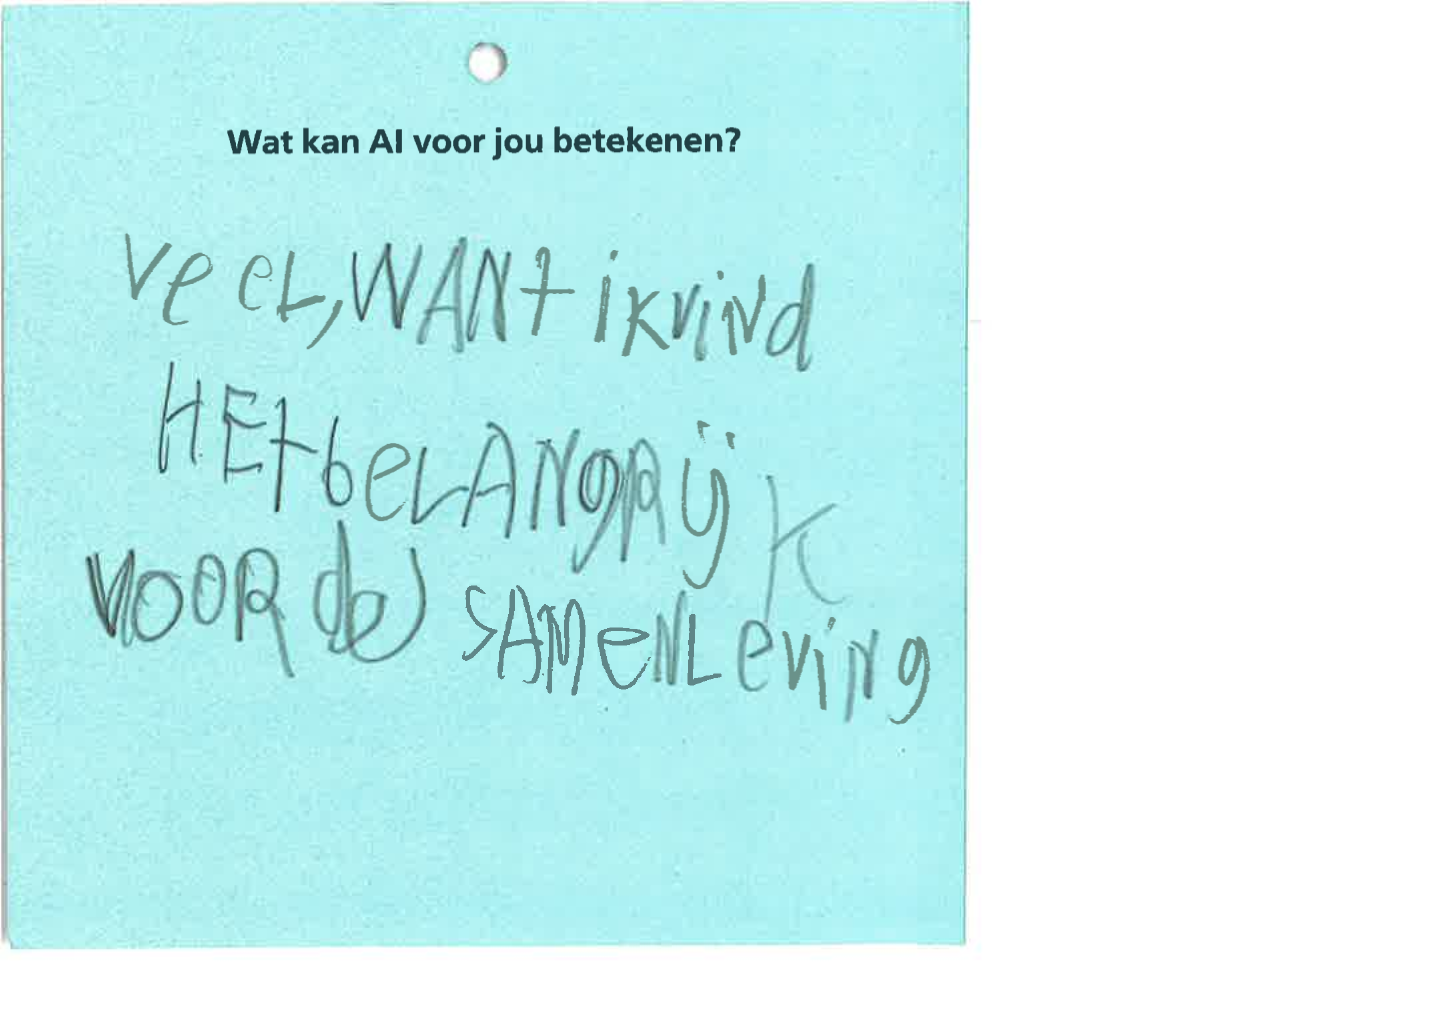 Wat kan AI voor jou betekenen?
veel, WANT ik vind
HEt beLANgRijk
VOOR de SAMENLeving